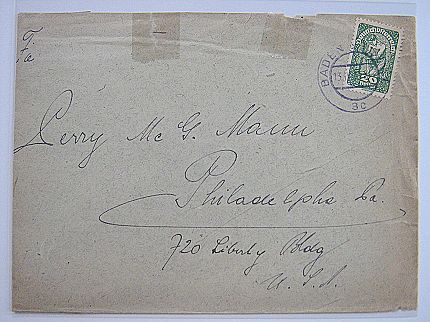 BADEN
13
3c
20
Perry Mc G. Mann
Philadelphia Pa.
720 Liberty Bldg
U.S.A.